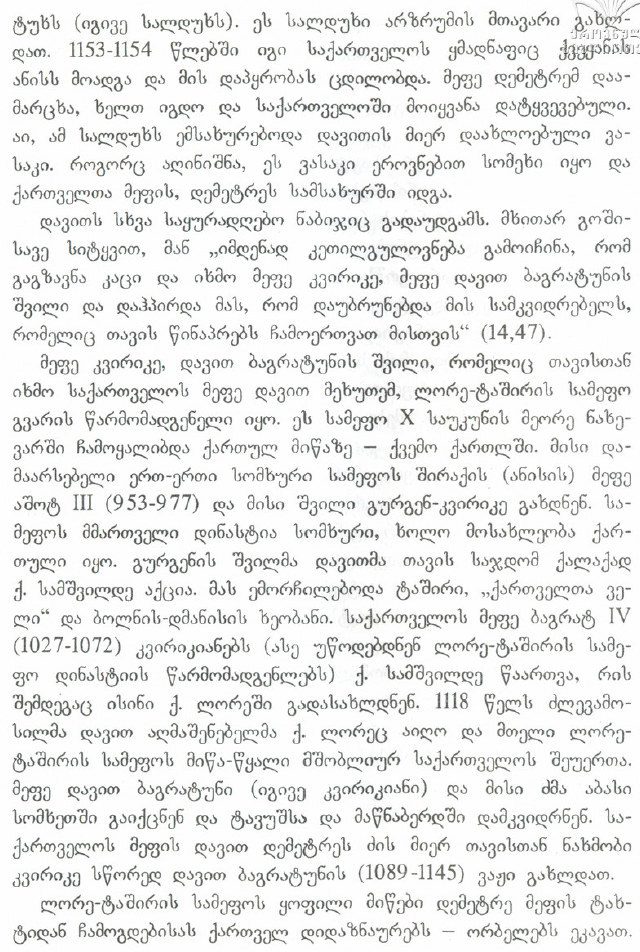 ტუხს (იგივე სალდუხს). ეს სალდუხი არზრუმის მთავარი გახლ-
დათ. 1153-1154 წლებში იგი საქართველოს ყმადნაფიც ქვეყანას
ანისს მოადგა და მის დაპყრობას ცდილობდა. მეფე დემეტრემ დაა-
მარცხა, ხელთ იგდო და საქართველოში მოიყვანა დატყვევებული.
აი, ამ სალდუხს ემსახურებოდა დავითის მიერ დაახლოებული ვა-
საკი. როგორც აღინიშნა, ეს ვასაკი ეროვნებით სომეხი იყო და
ქართველთა მეფის, დემეტრეს სამსახურში იდგა.
დავითს სხვა საყურადღებო ნაბიჯიც გადაუდგამს. მხითარ გოში-
სავე სიტყვით, მან „იმდენად კეთილგულოვნება გამოიჩინა, რომ
გაგზავნა კაცი და იხმო მეფე კვირიკე, მეფე დავით ბაგრატუნის
შვილი და დაჰპირდა მას, რომ დაუბრუნებდა მის სამკვიდრებელს,
რომელიც თავის წინაპრებს ჩამოერთვათ მისთვის“ (14,47).
მეფე კვირიკე, დავით ბაგრატუნის შვილი, რომელიც თავისთან
იხმო საქართველოს მეფე დავით მეხუთემ, ლორე-ტაშირის სამეფო
გვარის წარმომადგენელი იყო. ეს სამეფო X საუკუნის მეორე ნახე-
ვარში ჩამოყალიბდა ქართულ მიწაზე – ქვემო ქართლში. მისი და-
მაარსებელი ერთ-ერთი სომხური სამეფოს შირაქის (ანისის) მეფე
აშოტ III (953-977) და მისი შვილი გურგენ-კვირიკე გახდნენ. სა-
მეფოს მმართველი დინასტია სომხური, ხოლო მოსახლეობა ქარ-
თული იყო. გურგენის შვილმა დავითმა თავის საჯდომ ქალაქად
ქ. სამშვილდე აქცია. მას ემორჩილებოდა ტაშირი, „ქართველთა ვე-
ლი“ და ბოლნის-დმანისის ხეობანი. საქართველოს მეფე ბაგრატ IV
(1027-1072) კვირიკიანებს (ასე უწოდებდნენ ლორე-ტაშირის სამე-
ფო დინასტიის წარმომადგენლებს) ქ. სამშვილდე წაართვა, რის
შემდეგაც ისინი ქ. ლორეში გადასახლდნენ. 1118 წელს ძლევამო-
სილმა დავით აღმაშენებელმა ქ. ლორეც აიღო და მთელი ლორე-
ტაშირის სამეფოს მიწა-წყალი მშობლიურ საქართველოს შეუერთა.
მეფე დავით ბაგრატუნი (იგივე კვირიკიანი) და მისი ძმა აბასი
სომხეთში გაიქცნენ და ტავუშსა და მაწნაბერდში დამკვიდრნენ. სა-
ქართველოს მეფის დავით დემეტრეს ძის მიერ თავისთან ნახმობი
კვირიკე სწორედ დავით ბაგრატუნის (1089-1145) ვაჟი გახლდათ.
ლორე-ტაშირის სამეფოს ყოფილი მიწები დემეტრე მეფის ტახ-
ტიდან ჩამოგდებისას ქართველ დიდაზნაურებს – ორბელებს ეკავათ.